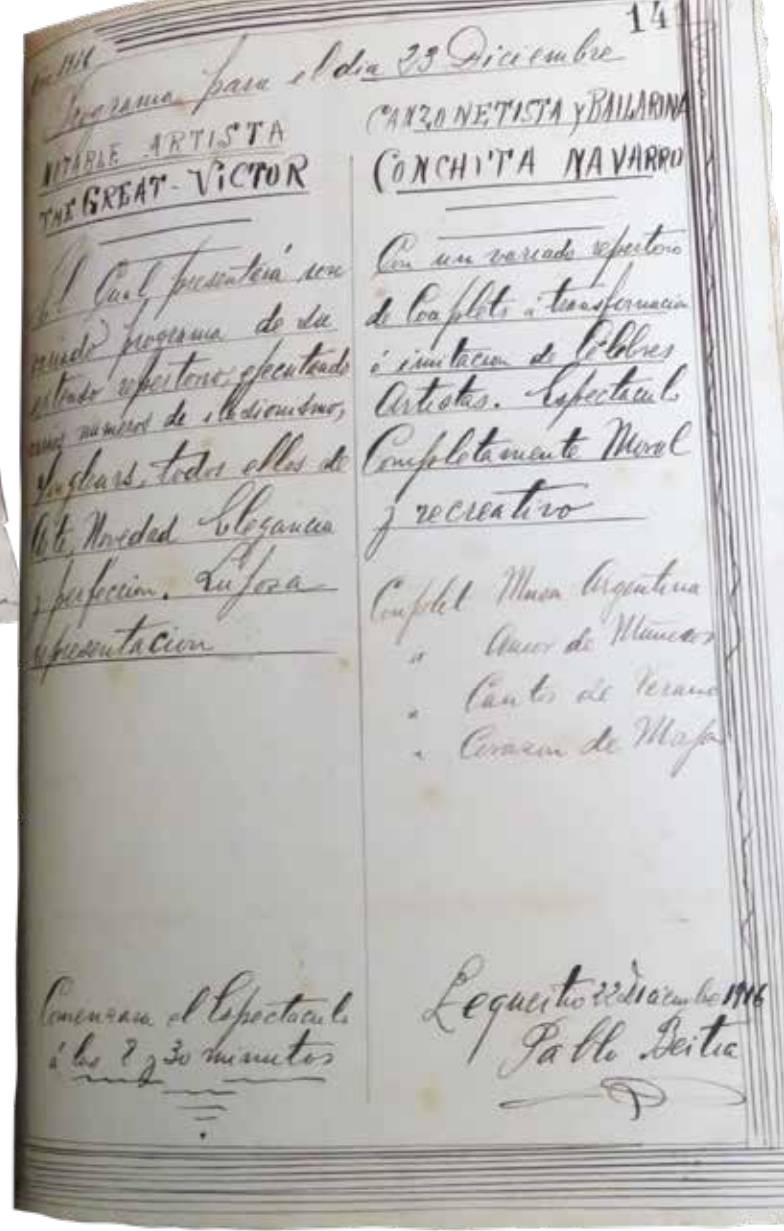 14
1916
Programa para el dia 23 Diciembre
NOTABLE ARTISTA
THE GREAT-VICTOR
El Cual presentará un
variado programa de su
extenso repertorio, ejecutando
varios numeros de iludionismo,
todos ellos de
Arte, Novedad Elegancia
y perfeccion. Lujosa
representacion
Comenzara el Espectaculo
á las 8 y 30 minutos
CANZONETISTA y BAILARINA
CONCHITA NAVARRO
Con un variado repertorio
de Couplets á transformacion
é imitacion de Célebres
Artistas. Espectaculo
Completamente Moral
y recreativo
Couplet Musa Argentina
" Amor de Muñecos
" Cantos de Verano
" Corazon de Maja
Lequeitio 22 Diciembre 1916
Pablo Beitia